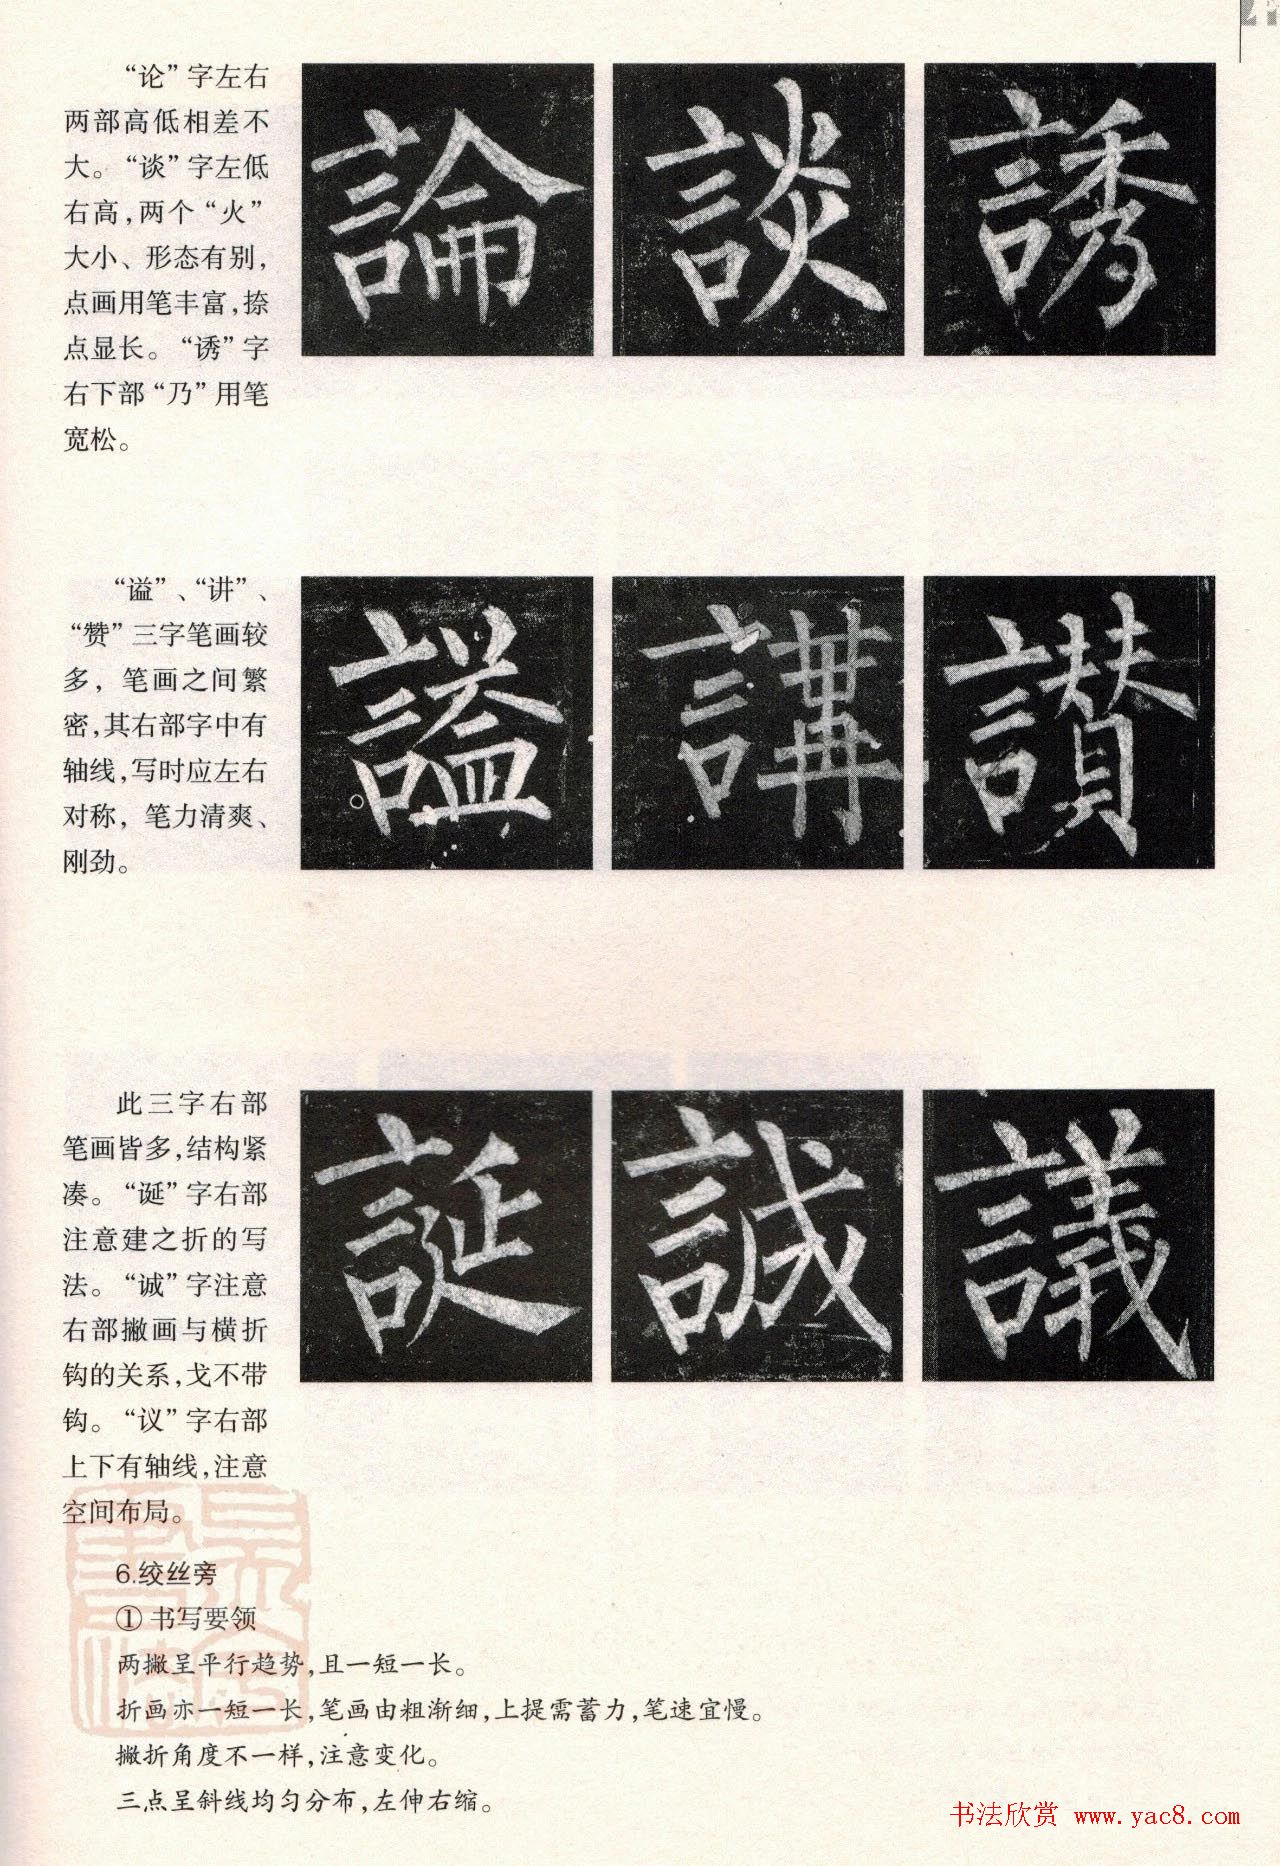 “论”字左右
两部高低相差不
大。“谈”字左低
右高,两个“火”
大小、形态有别,
点画用笔丰富,捺
点显长。“诱”字
右下部“乃”用笔
宽松。
論 談 誘
“谥”、“讲”、
“赞”三字笔画较
多，笔画之间繁
密,其右部字中有
轴线,写时应左右
对称，笔力清爽、
刚劲。
謚 講 讃
此三字右部
笔画皆多,结构紧
凑。“诞”字右部
注意建之折的写
法。“诚”字注意
右部撇画与横折
钩的关系,戈不带
钩。“议”字右部
上下有轴线,注意
空间布局。
誕 誠 議
6.绞丝旁
① 书写要领
两撇呈平行趋势,且一短一长。
折画亦一短一长,笔画由粗渐细,上提需蓄力,笔速宜慢。
撇折角度不一样,注意变化。
三点呈斜线均匀分布,左伸右缩。
书法欣赏 www.yac8.com